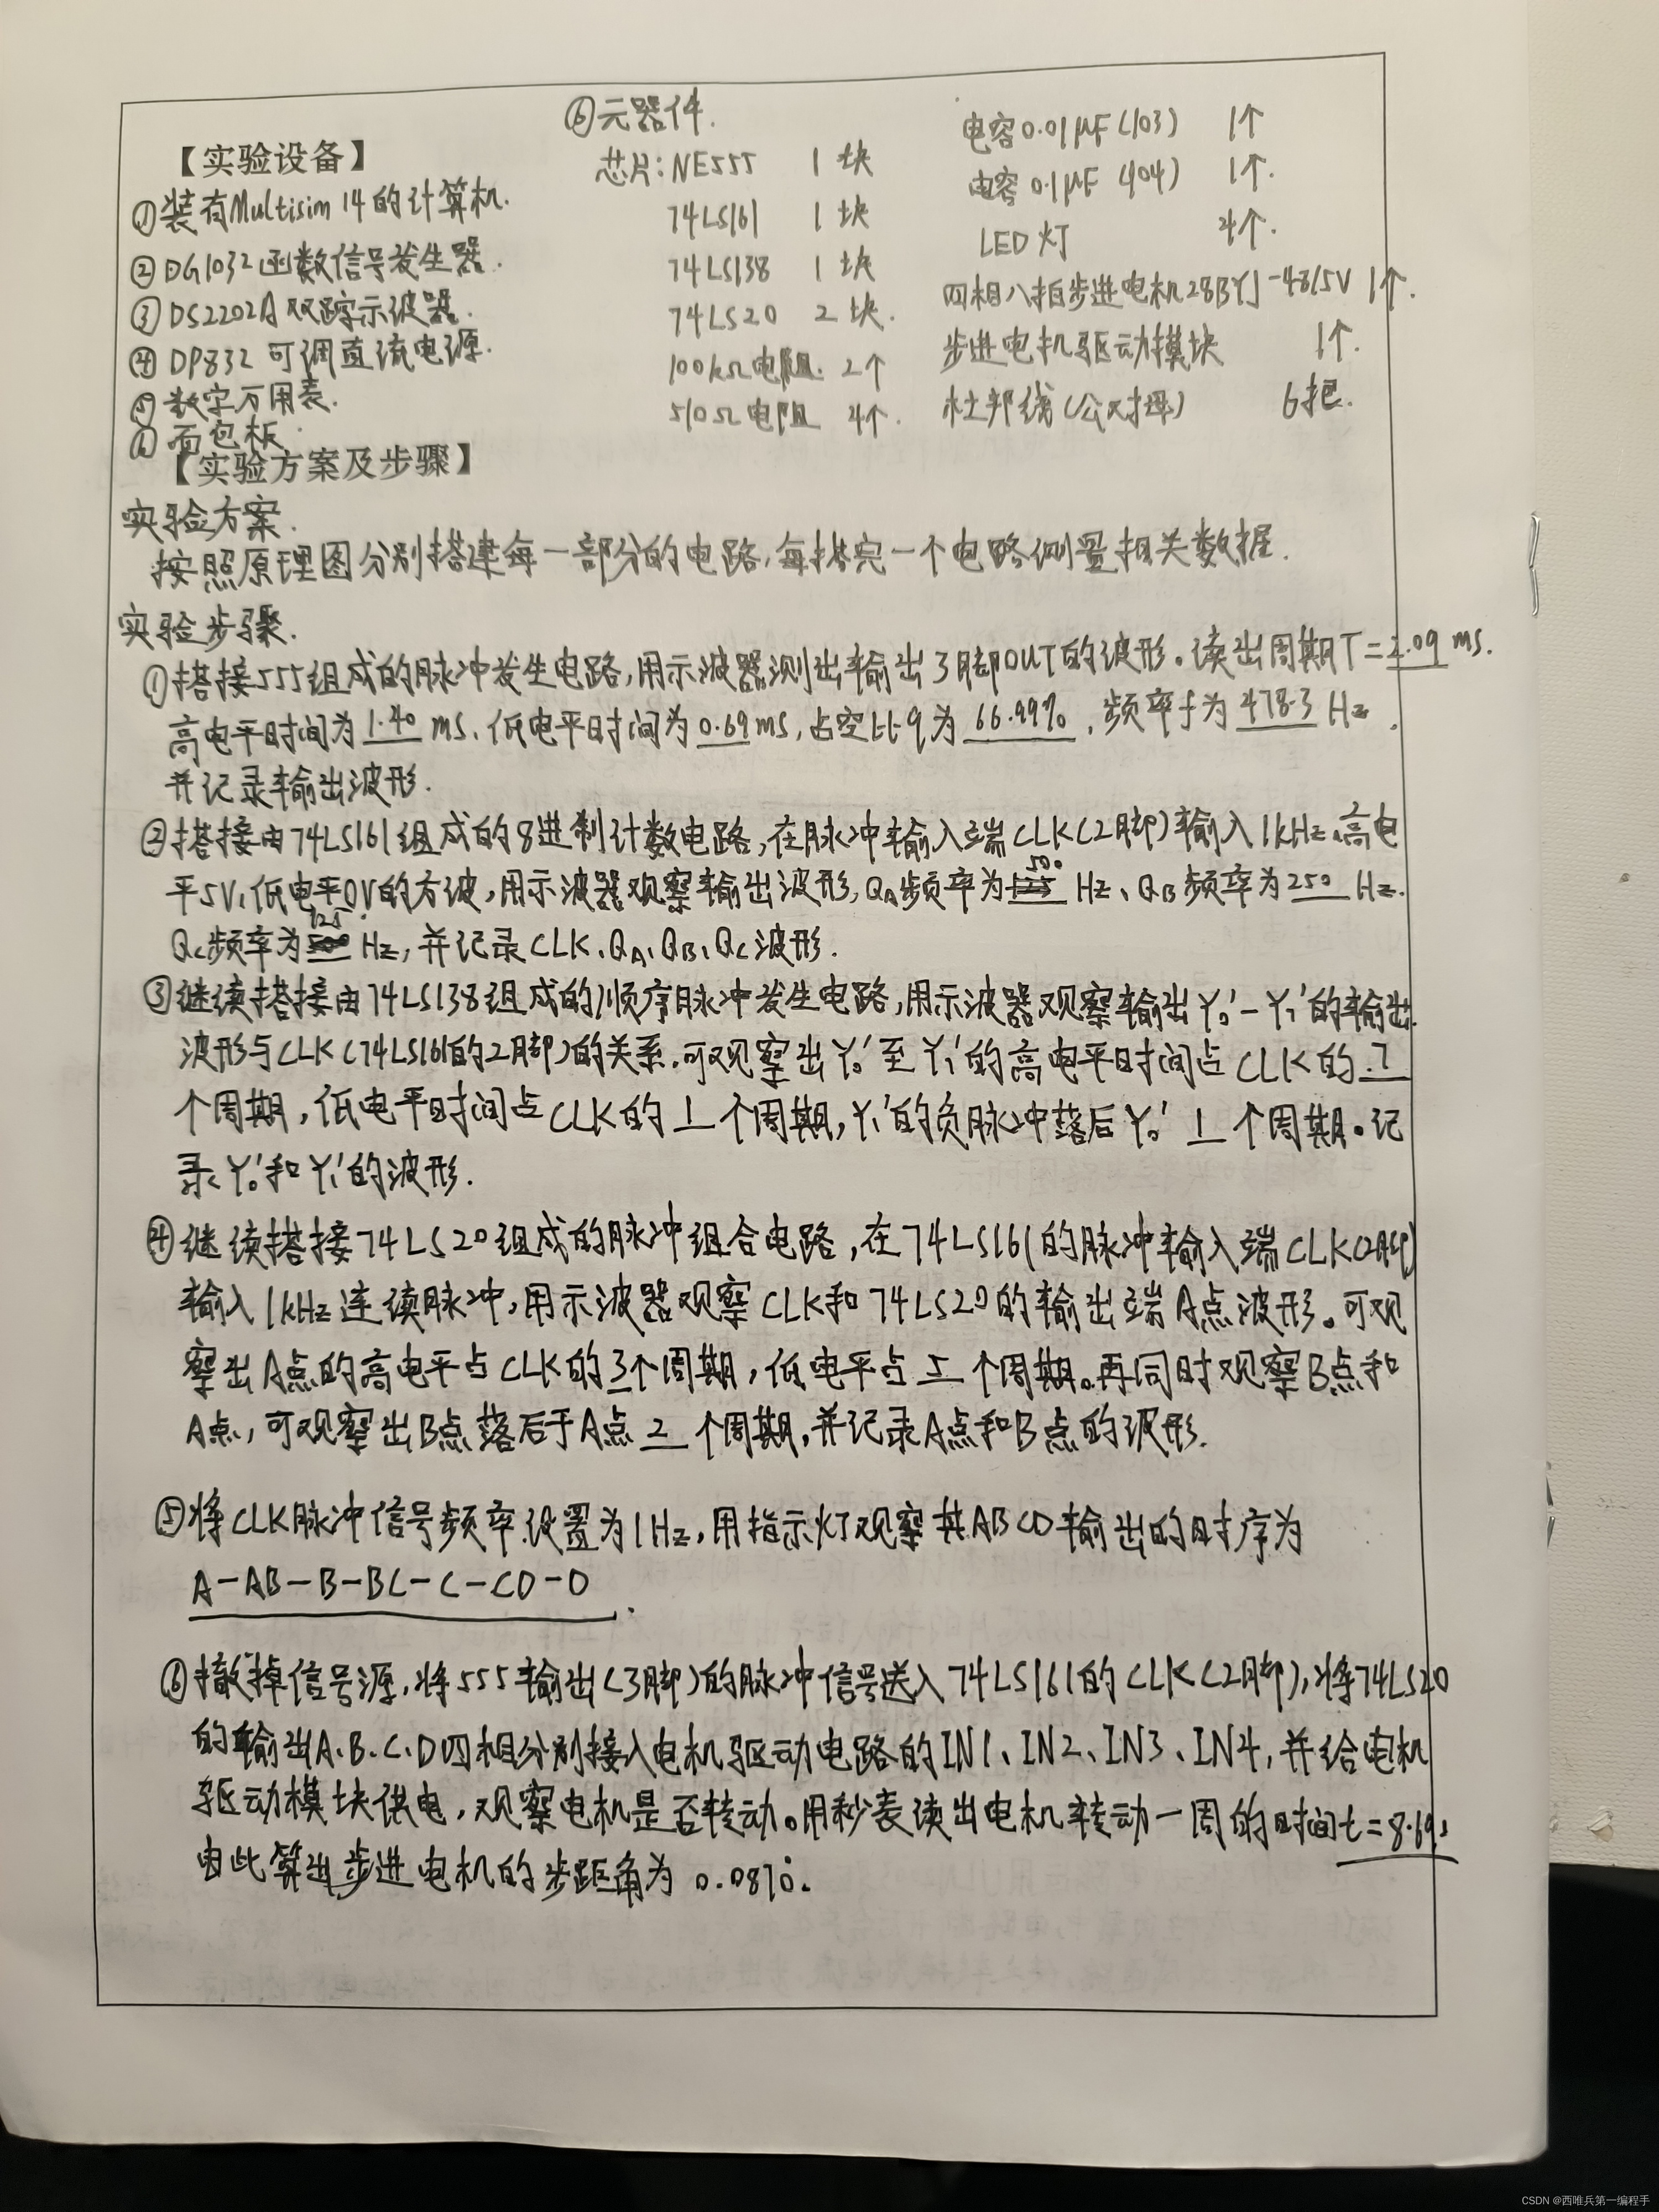 【实验设备】
①装有Multisim 14的计算机.
②DG1032函数信号发生器.
③DS2202A双踪示波器.
④DP832可调直流电源.
⑤数字万用表.
⑥面包板.
⑥元器件.
芯片:NE555 1块
74LS161 1块
74LS138 1块
74LS20 2块.
100kΩ电阻. 2个
510Ω电阻 4个.
电容0.01μF(103) 1个
电容0.1μF(104) 1个.
LED灯 4个.
四相八拍步进电机28BYJ-48/5V 1个.
步进电机驱动模块 1个.
杜邦线(公对母) 6把.
【实验方案及步骤】
实验方案.
按照原理图分别搭建每一部分的电路,每搭完一个电路测量相关数据.
实验步骤.
①搭接555组成的脉冲发生电路,用示波器测出输出3脚OUT的波形。读出周期T=2.09ms.
高电平时间为1.40ms、低电平时间为0.69ms,占空比q为66.99%,频率f为478.3Hz,
并记录输出波形.
②搭接由74LS161组成的8进制计数电路,在脉冲输入端CLK(2脚)输入1kHz、高电
平5V、低电平0V的方波,用示波器观察输出波形,QA频率为500Hz、QB频率为250Hz.
Qc频率为125Hz,并记录CLK、QA、QB、Qc波形.
③继续搭接由74LS138组成的顺序脉冲发生电路,用示波器观察输出Y0'-Y7'的输出
波形与CLK(74LS161的2脚)的关系.可观察出Y0'至Y7'的高电平时间占CLK的7
个周期,低电平时间占CLK的1个周期,Y1'的负脉冲落后Y0' 1个周期。记
录Y0'和Y1'的波形.
④继续搭接74LS20组成的脉冲组合电路,在74LS161的脉冲输入端CLK(2脚)
输入1kHz连续脉冲,用示波器观察CLK和74LS20的输出端A点波形。可观
察出A点的高电平占CLK的3个周期,低电平占5个周期。再同时观察B点和
A点,可观察出B点落后于A点2个周期,并记录A点和B点的波形.
⑤将CLK脉冲信号频率设置为1Hz,用指示灯观察其ABCD输出的时序为
A-AB-B-BC-C-CD-D.
⑥撤掉信号源,将555输出(3脚)的脉冲信号送入74LS161的CLK(2脚),将74LS20
的输出A、B、C、D四相分别接入电机驱动电路的IN1、IN2、IN3、IN4,并给电机
驱动模块供电,观察电机是否转动。用秒表读出电机转动一周的时间t=8.69s
由此算出步进电机的步距角为0.0870°.
CSDN @西唯兵第一编程手